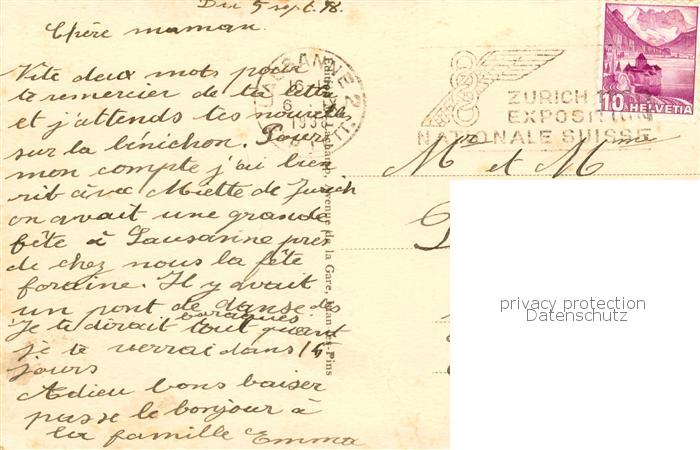 Du 5 sept. 38.
Chère maman.
Vite deux mots pour
te remercier de ta lettre
et j'attends tes nouvelles
sur la bénichon. Pour
mon compte j'ai bien
rib avec Miette de Zurich
on avait une grande
fête à Lausanne près
de chez nous la fête
foraine. Il y avait
un pont de danse des
baraques
Je te dirait tout quant
je te verrai dans 15
jours
Adieu bons baiser
passe le bonjour à
la famille Emma
LAUSANNE 2
6
193
Avenue de la Gare,
ZURICH 1
EXPOSITION
NATIONALE SUISSE
10 HELVETIA
Mr et Mme
privacy protection
Datenschutz